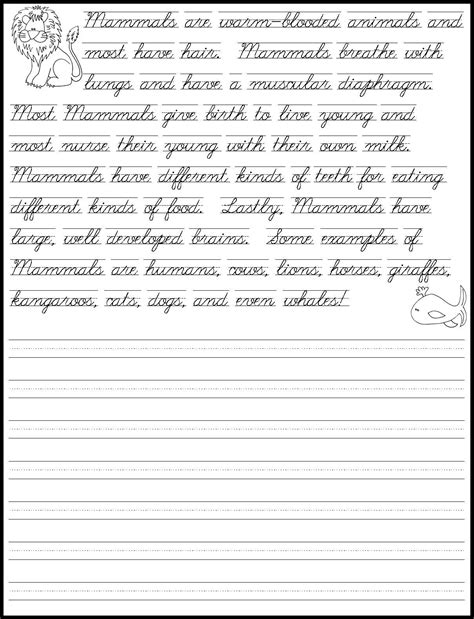 Mammals are warm-blooded animals and
most have hair. Mammals breathe with
lungs and have a muscular diaphragm.
Most Mammals give birth to live young and
most nurse their young with their own milk.
Mammals have different kinds of teeth for eating
different kinds of food. Lastly, Mammals have
large, well developed brains. Some examples of
Mammals are humans, cows, lions, horses, giraffes,
kangaroos, cats, dogs, and even whales!